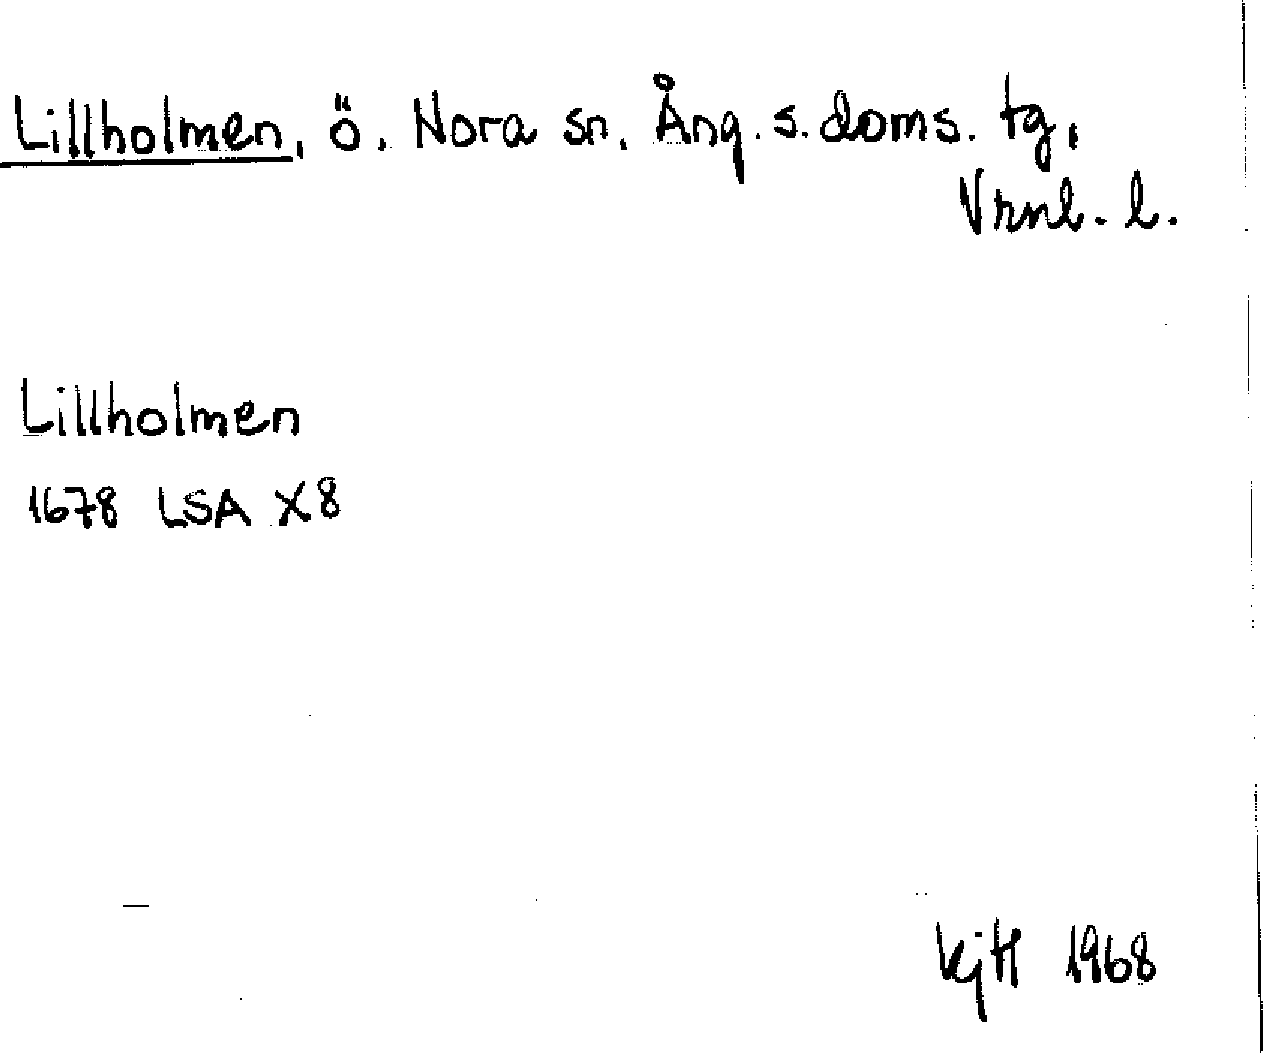 Lillholmen, ö. Nora sn, Ång. s. doms. tg,
Vrnl. l.
Lillholmen
1678 LSA X8
KjH 1968